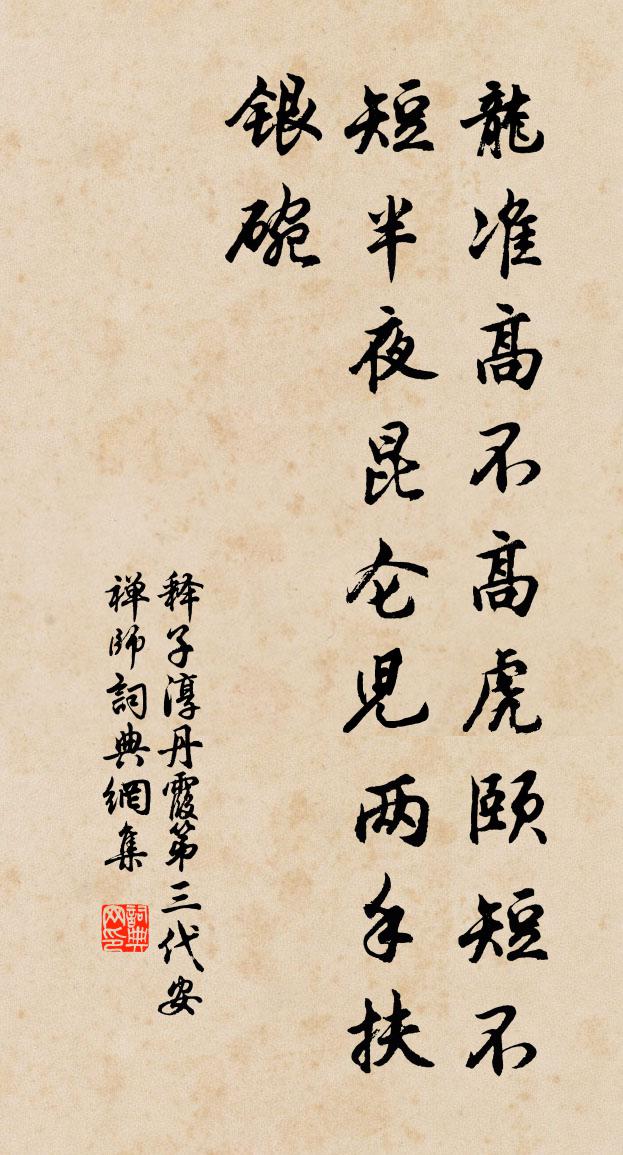 龍准高不高虎頤短不
短半夜昆仑兒两手扶
銀碗
释子淳丹霞第三代安
禅師詞典網集
詞典网印